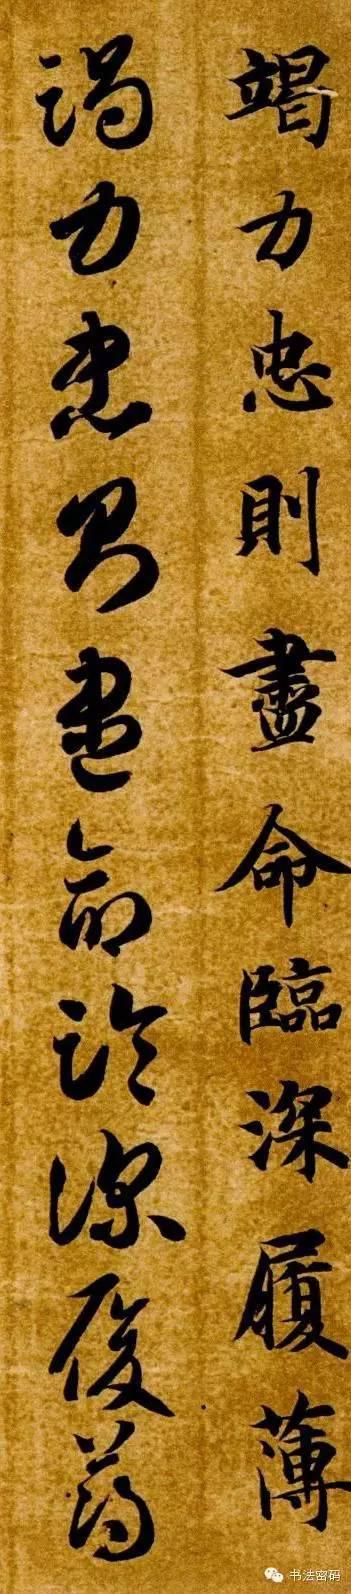 竭力忠則盡命臨深履薄
竭力忠則盡命臨深履薄
书法密码